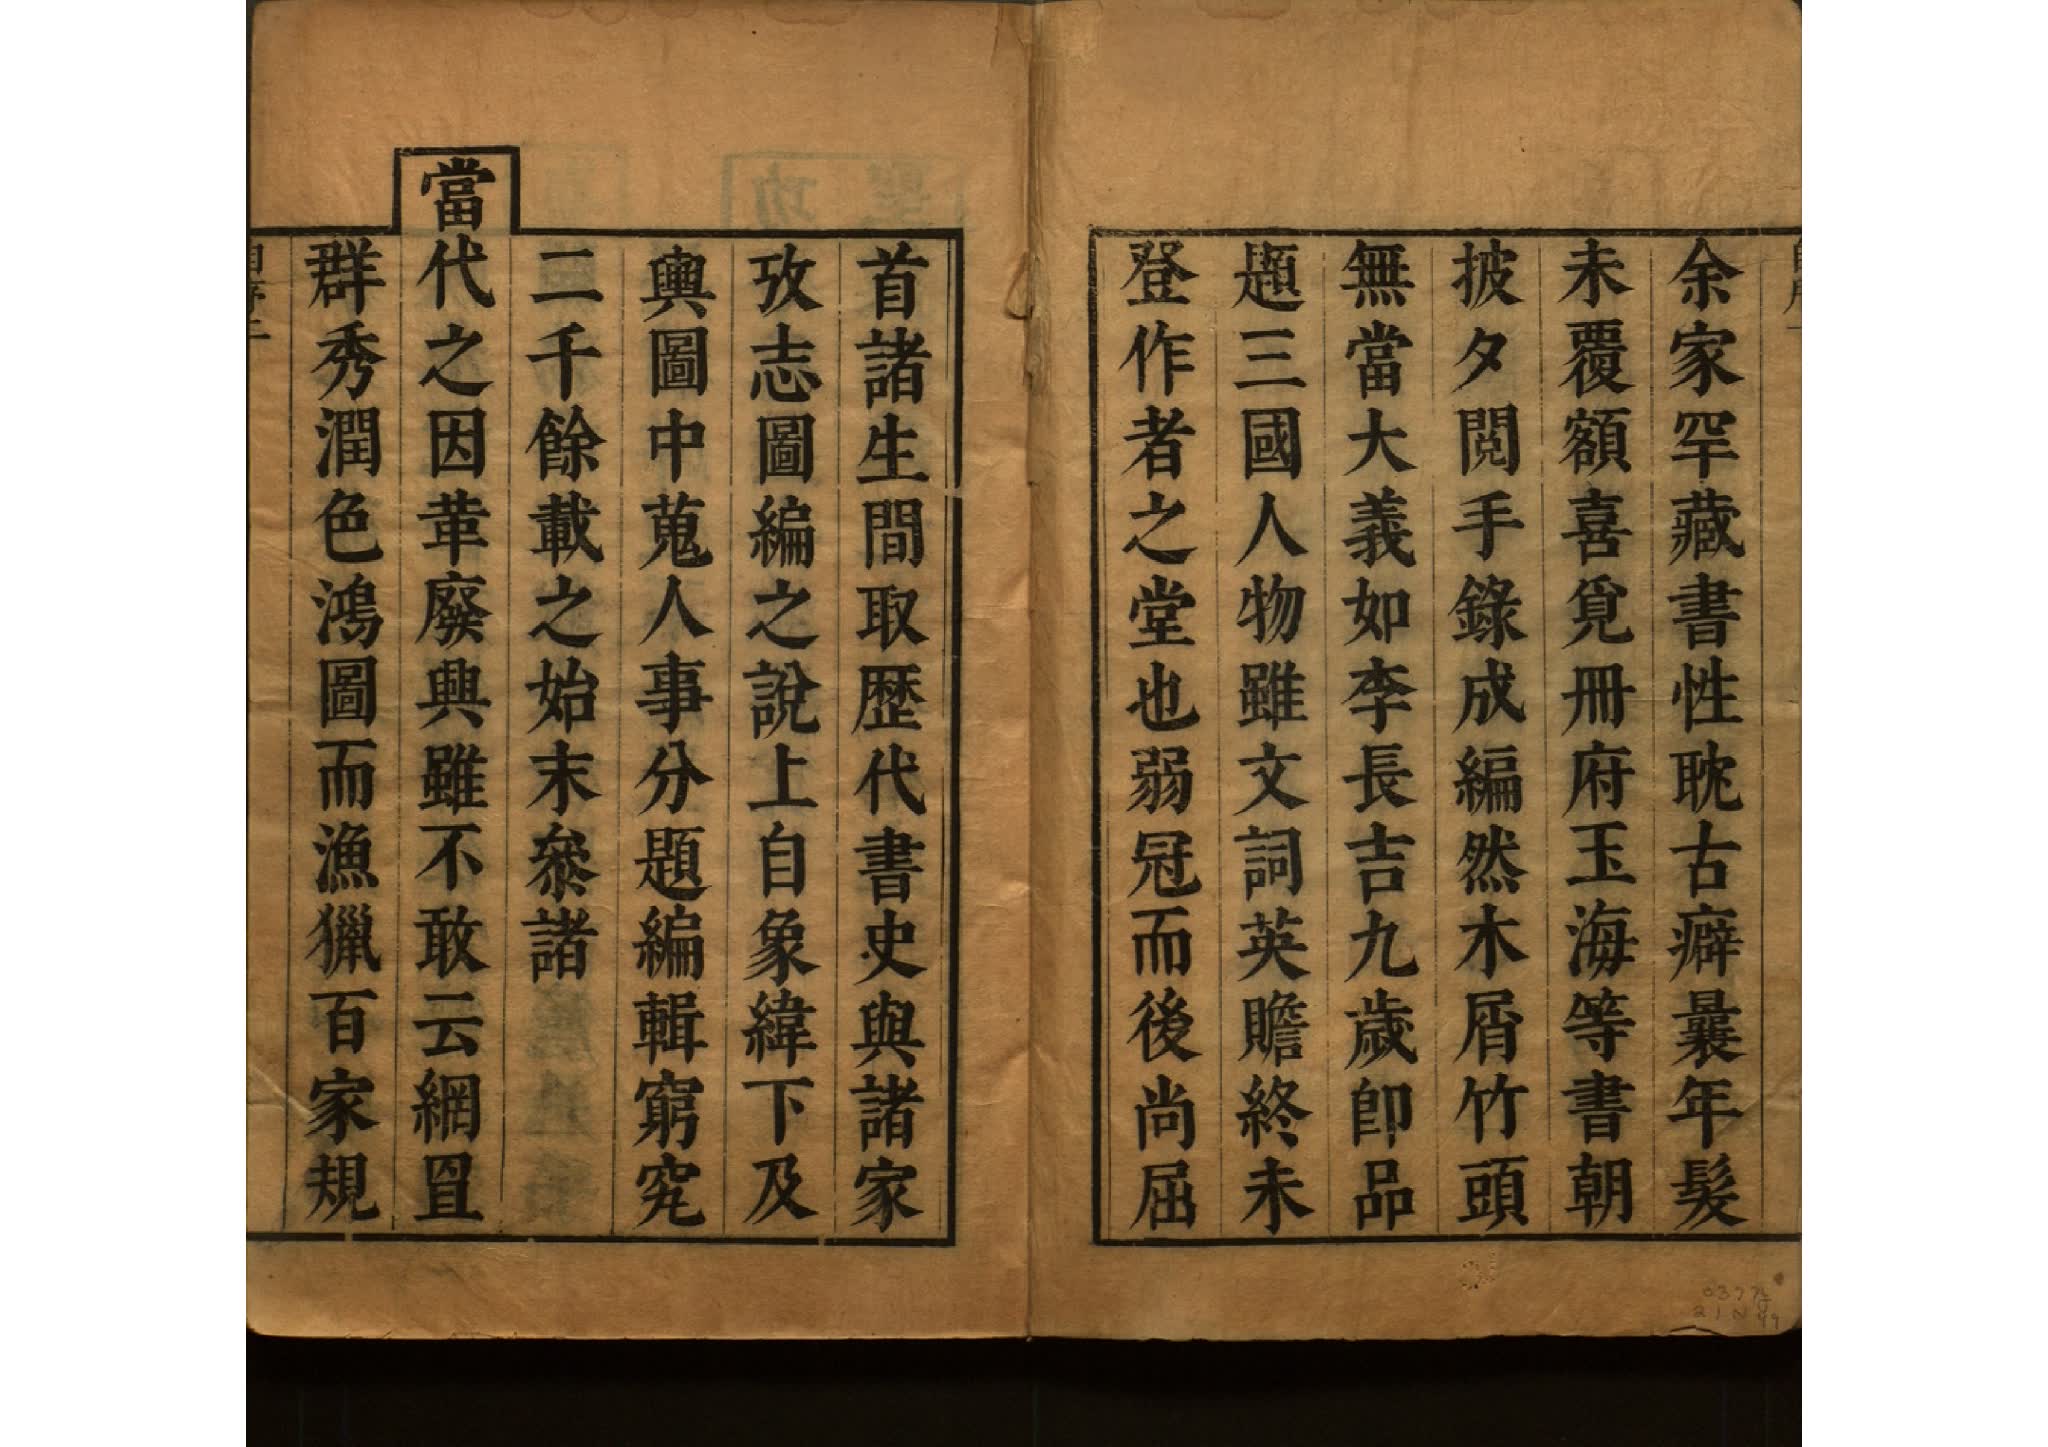 余家罕藏書性耽古癖曩年髮
未覆額喜覓冊府玉海等書朝
披夕閱手錄成編然木屑竹頭
無當大義如李長吉九歲卽品
題三國人物雖文詞英贍終未
登作者之堂也弱冠而後尚屈
首諸生間取歷代書史與諸家
攷志圖編之說上自象緯下及
輿圖中蒐人事分題編輯窮究
二千餘載之始末叅諸
當代之因革廢興雖不敢云網罝
群秀潤色鴻圖而漁獵百家規